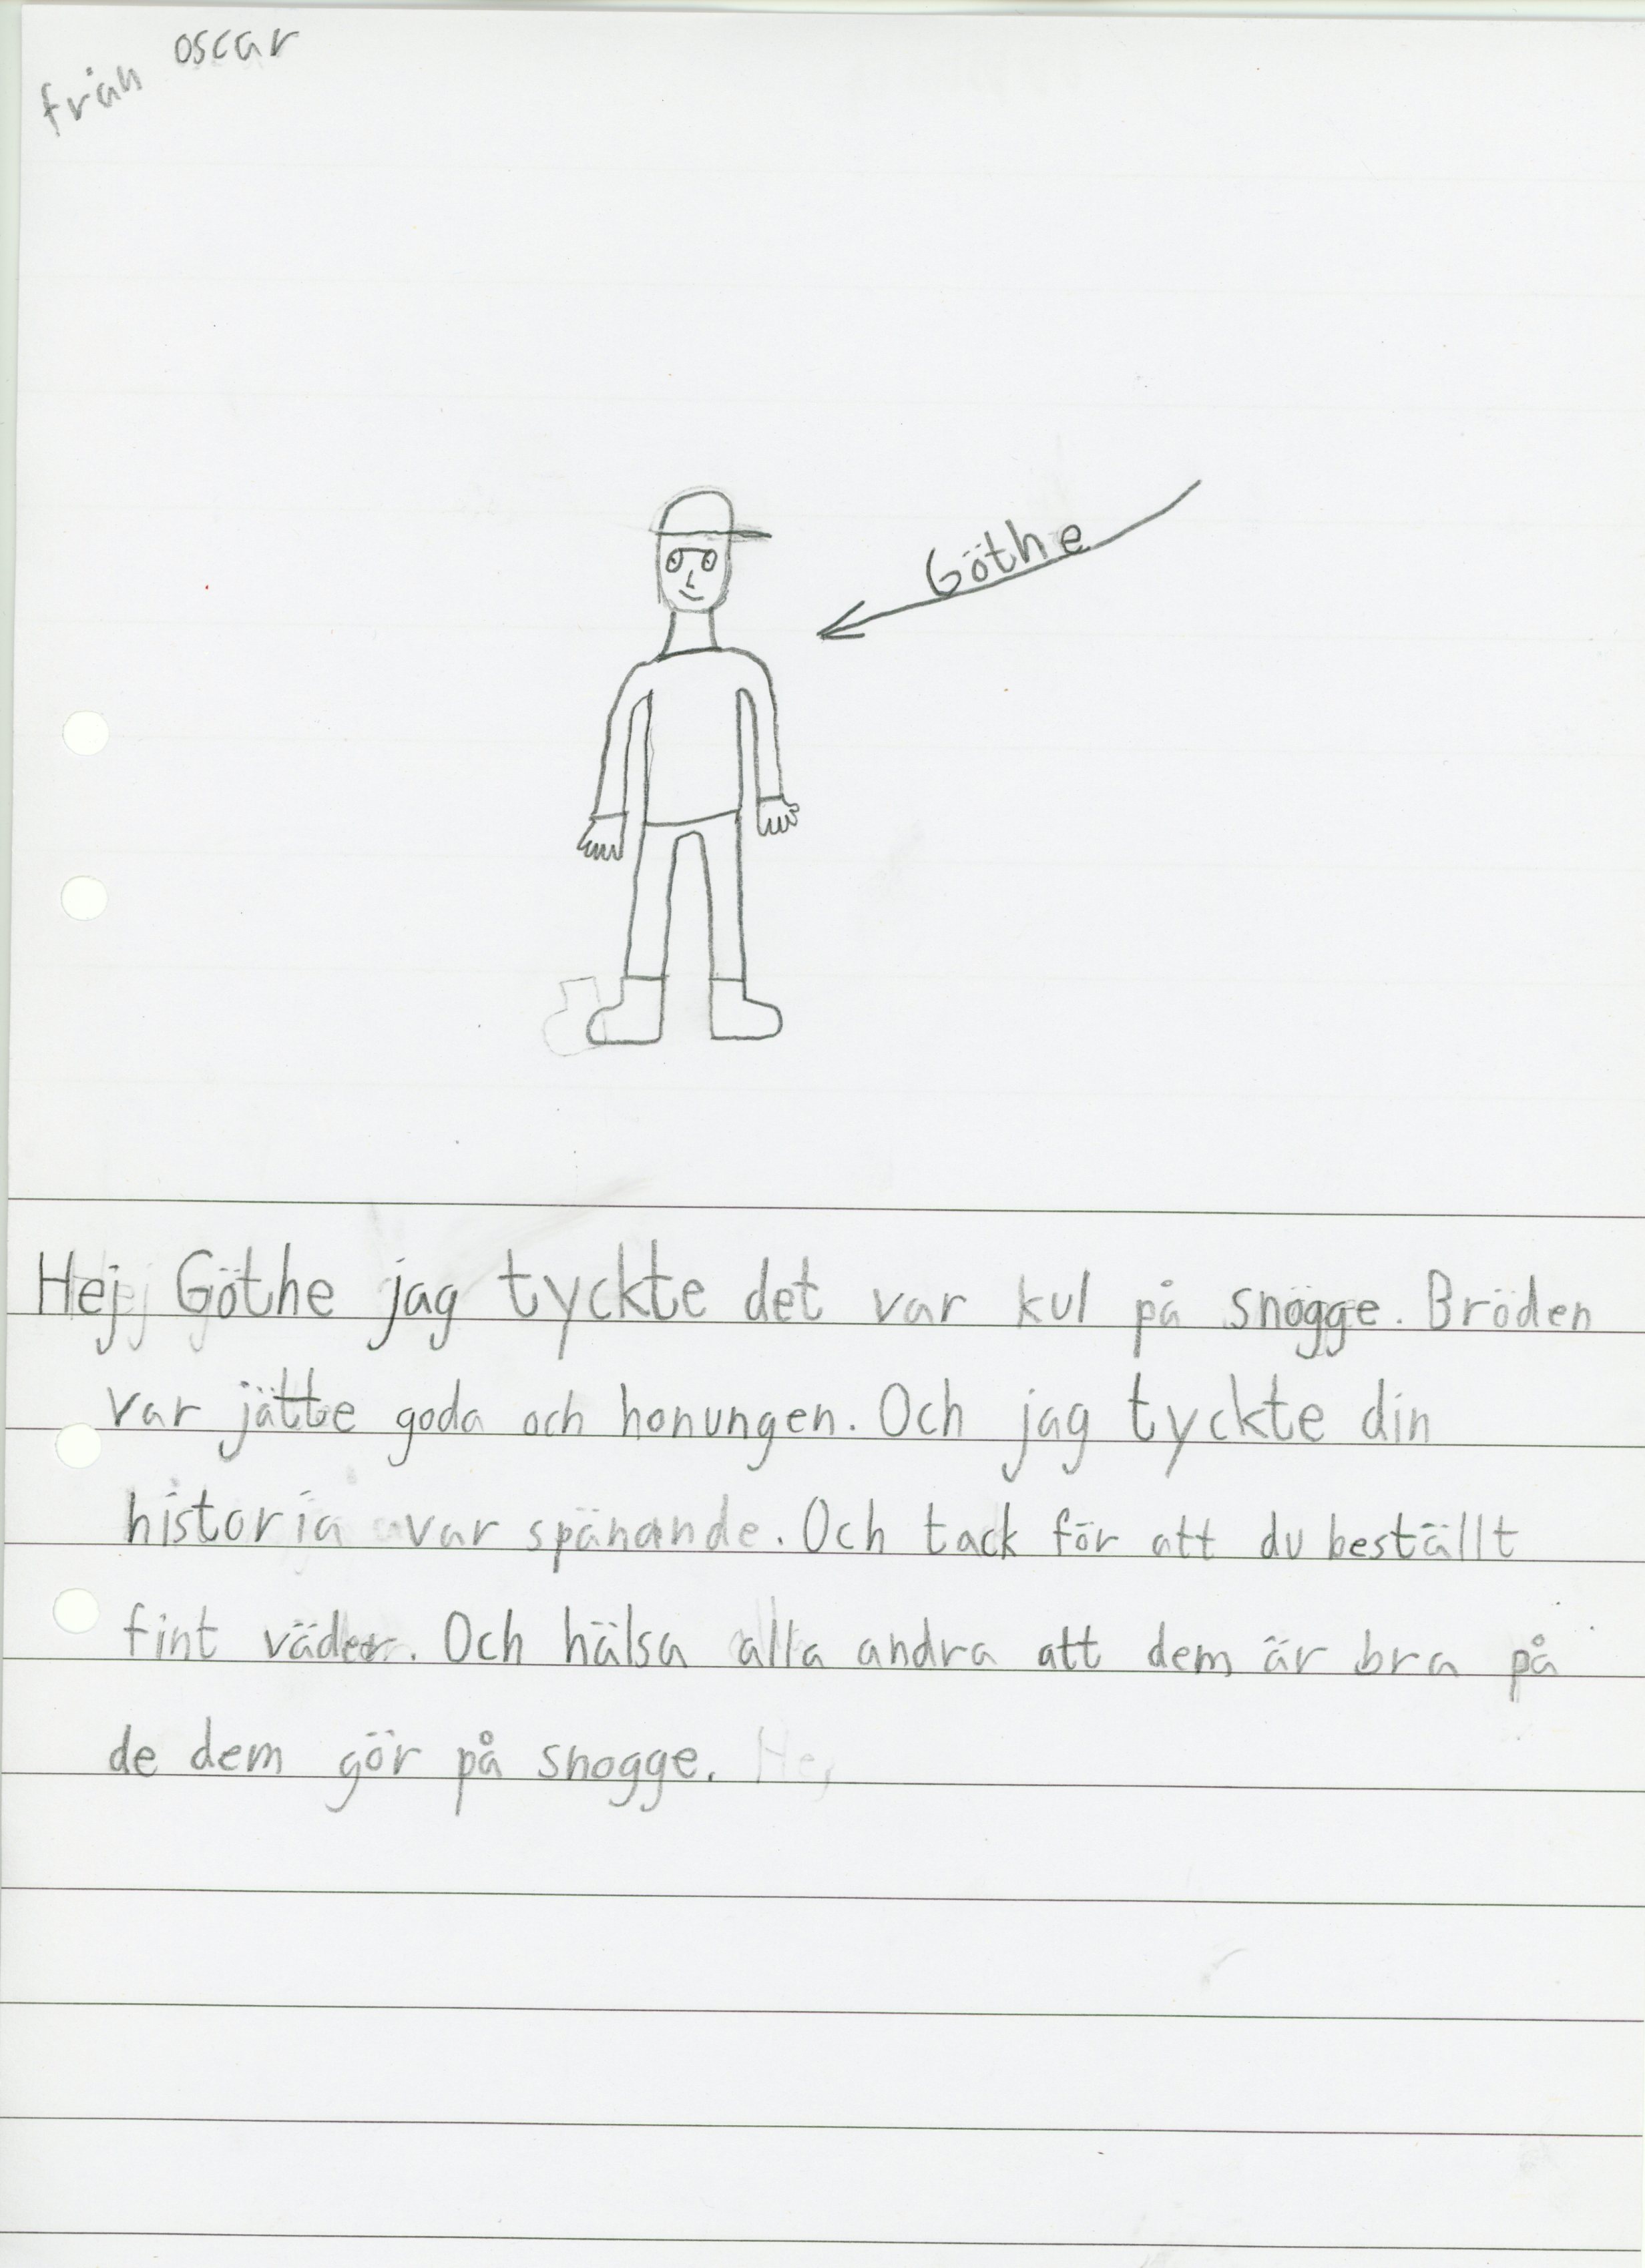 från oscar
Göthe
Hej Göthe jag tyckte det var kul på snögge. Bröden
var jätte goda och honungen. Och jag tyckte din
historia var spänande. Och tack för att du beställt
fint väder. Och hälsa alla andra att dem är bra på
de dem gör på snogge.